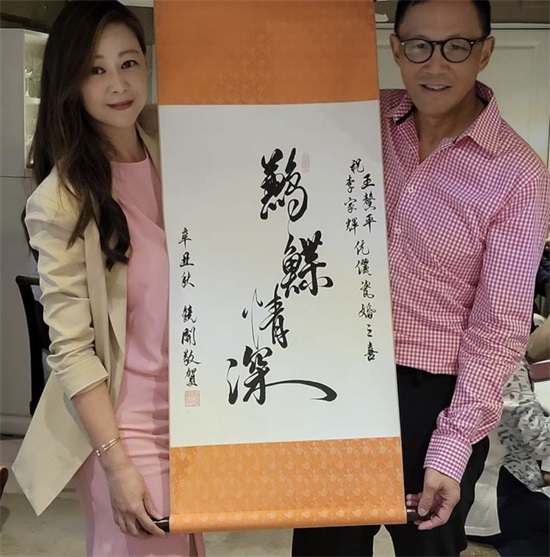 祝王馨平李家輝伉儷瓷婚之喜
鶼鰈情深
辛丑秋 敬賀